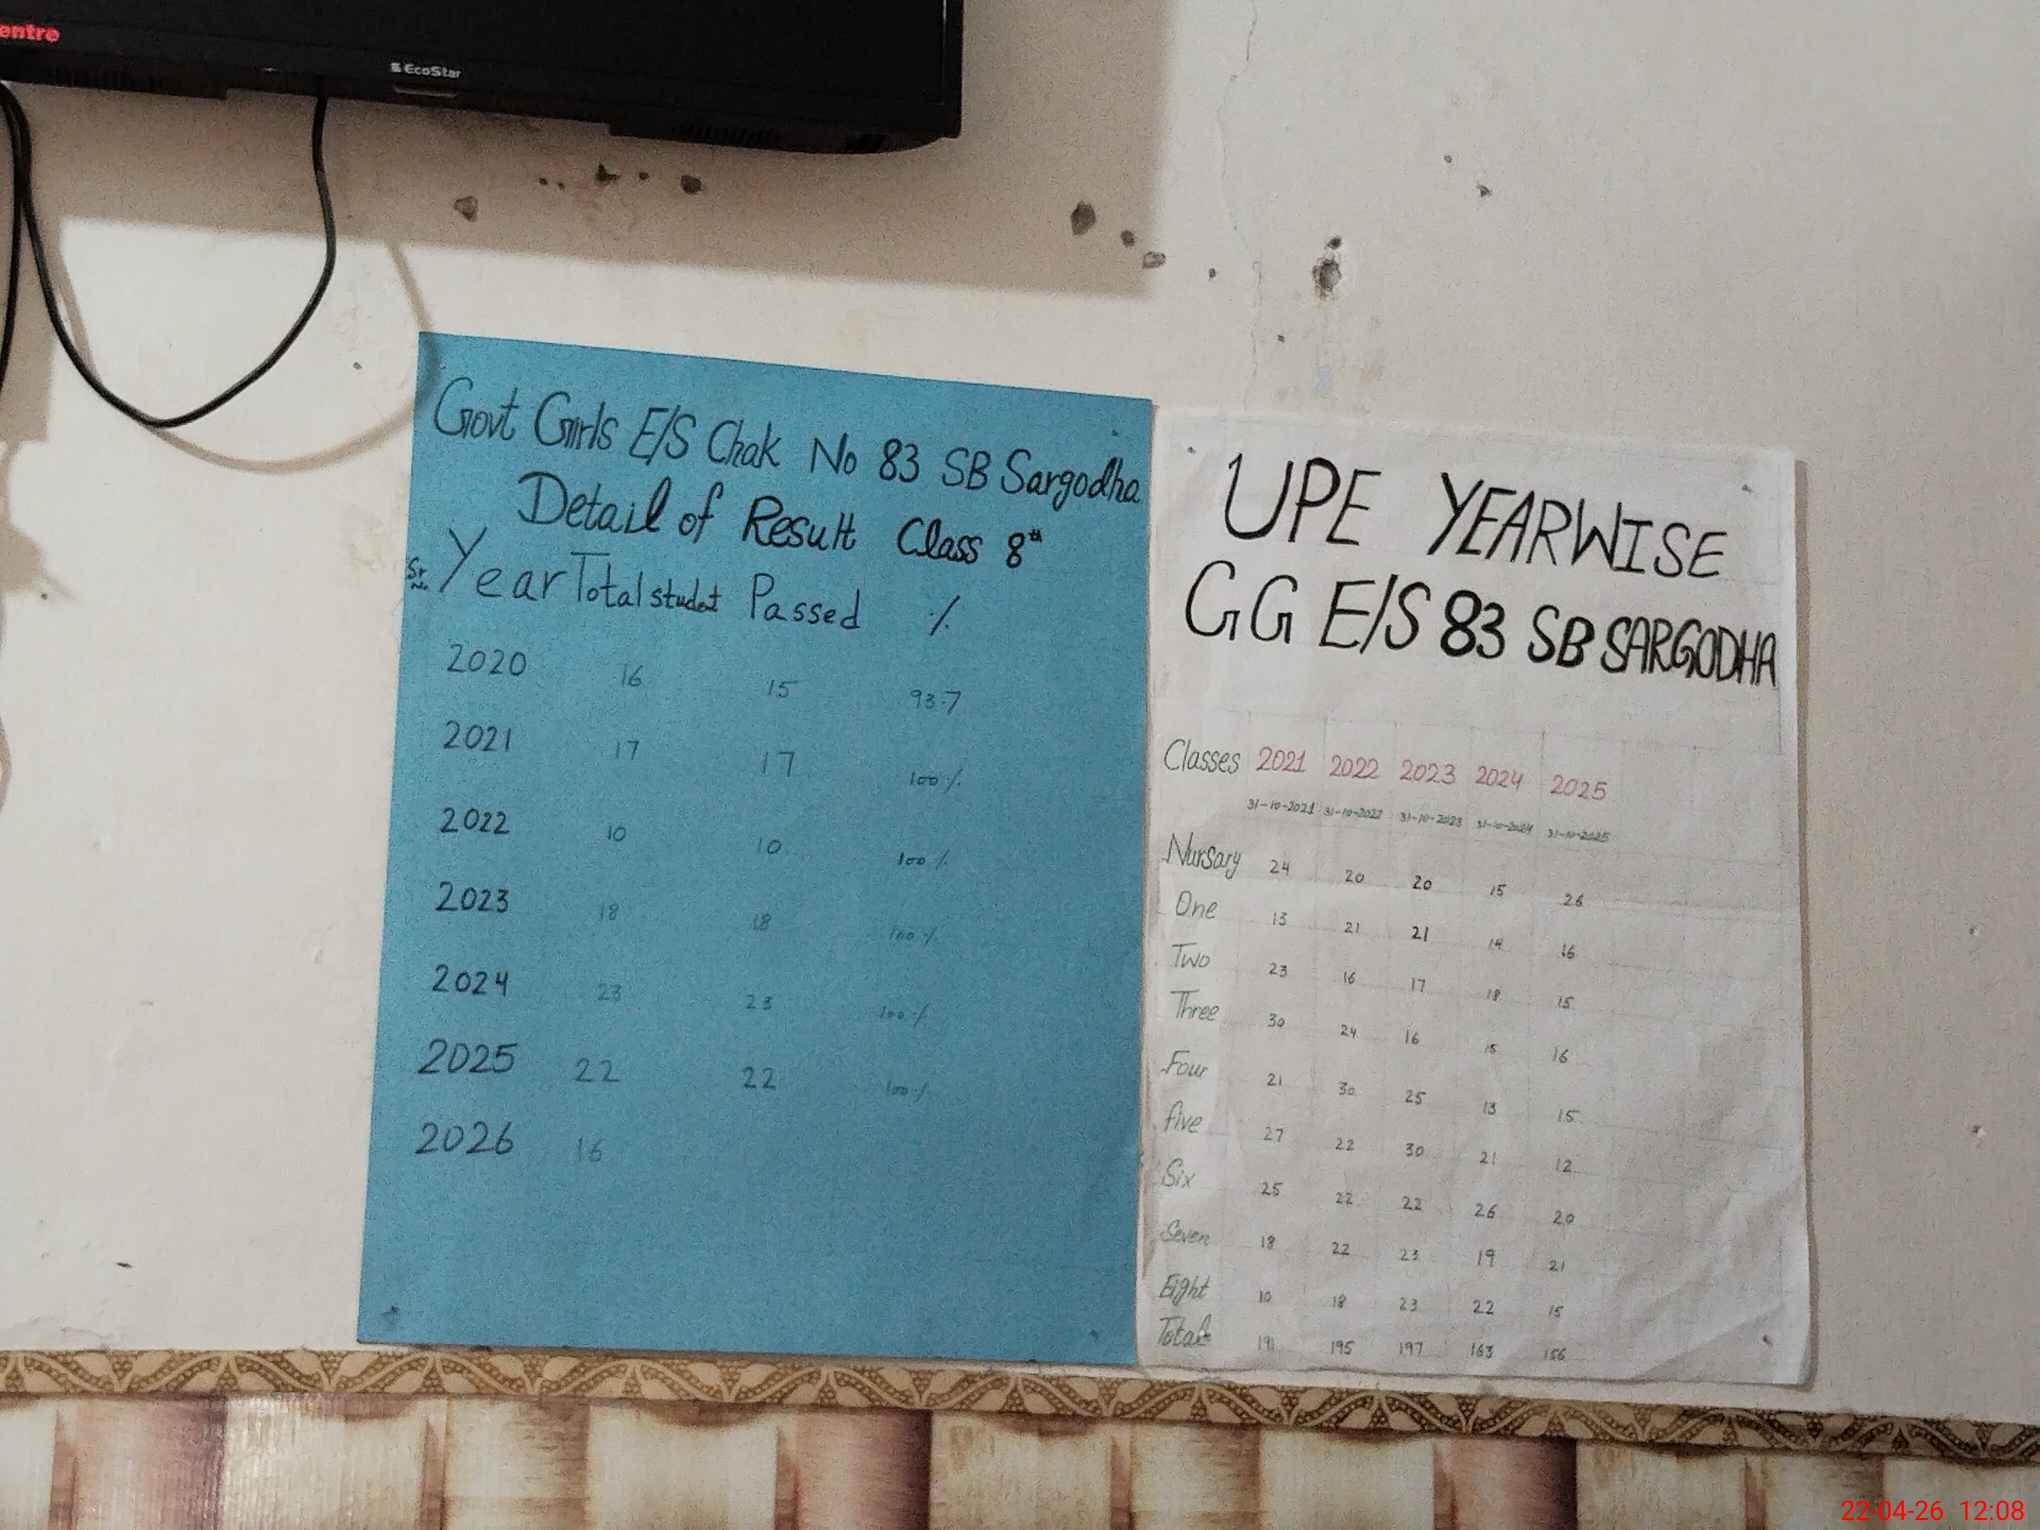 entre
EcoStar
Govt Girls E/S Chak No 83 SB Sargodha
Detail of Result Class 8th
Sr No. Year Total student Passed %
2020 16 15 93.7
2021 17 17 100%
2022 10 10 100%
2023 18 18 100%
2024 23 23 100%
2025 22 22 100%
2026 16
UPE YEARWISE
GG E/S 83 SB SARGODHA
Classes 2021 2022 2023 2024 2025
31-10-2021 31-10-2022 31-10-2023 31-10-2024 31-10-2025
Nursary 24 20 20 15 26
One 13 21 21 14 16
Two 23 16 17 18 15
Three 30 24 16 15 16
Four 21 30 25 13 15
five 27 22 30 21 12
Six 25 22 22 26 20
Seven 18 22 23 19 21
Eight 10 18 23 22 15
Total 191 195 197 163 156
22-04-26 12:08